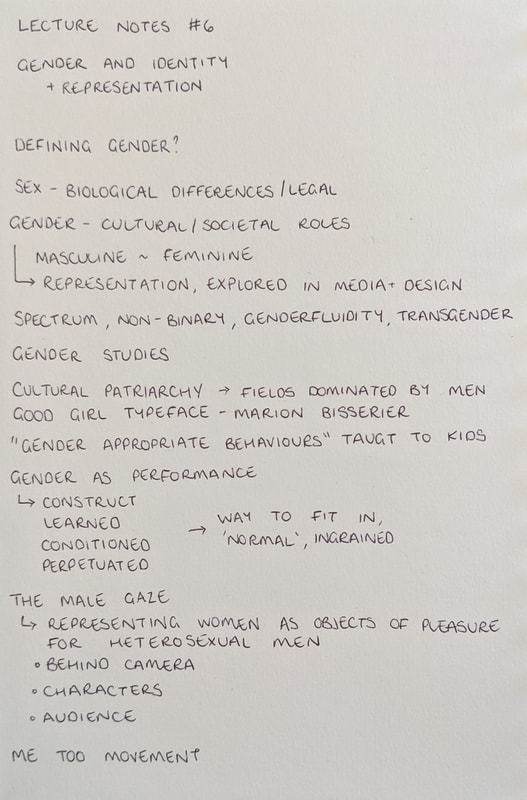 LECTURE NOTES #6
GENDER AND IDENTITY
+ REPRESENTATION
DEFINING GENDER?
SEX - BIOLOGICAL DIFFERENCES/LEGAL
GENDER - CULTURAL/SOCIETAL ROLES
MASCULINE ~ FEMININE
↳ REPRESENTATION, EXPLORED IN MEDIA + DESIGN
SPECTRUM, NON-BINARY, GENDERFLUIDITY, TRANSGENDER
GENDER STUDIES
CULTURAL PATRIARCHY → FIELDS DOMINATED BY MEN
GOOD GIRL TYPEFACE - MARION BISSERIER
"GENDER APPROPRIATE BEHAVIOURS" TAUGT TO KIDS
GENDER AS PERFORMANCE
↳ CONSTRUCT
LEARNED
CONDITIONED
PERPETUATED
→ WAY TO FIT IN,
'NORMAL', INGRAINED
THE MALE GAZE
↳ REPRESENTING WOMEN AS OBJECTS OF PLEASURE
FOR HETEROSEXUAL MEN
• BEHIND CAMERA
• CHARACTERS
• AUDIENCE
ME TOO MOVEMENT